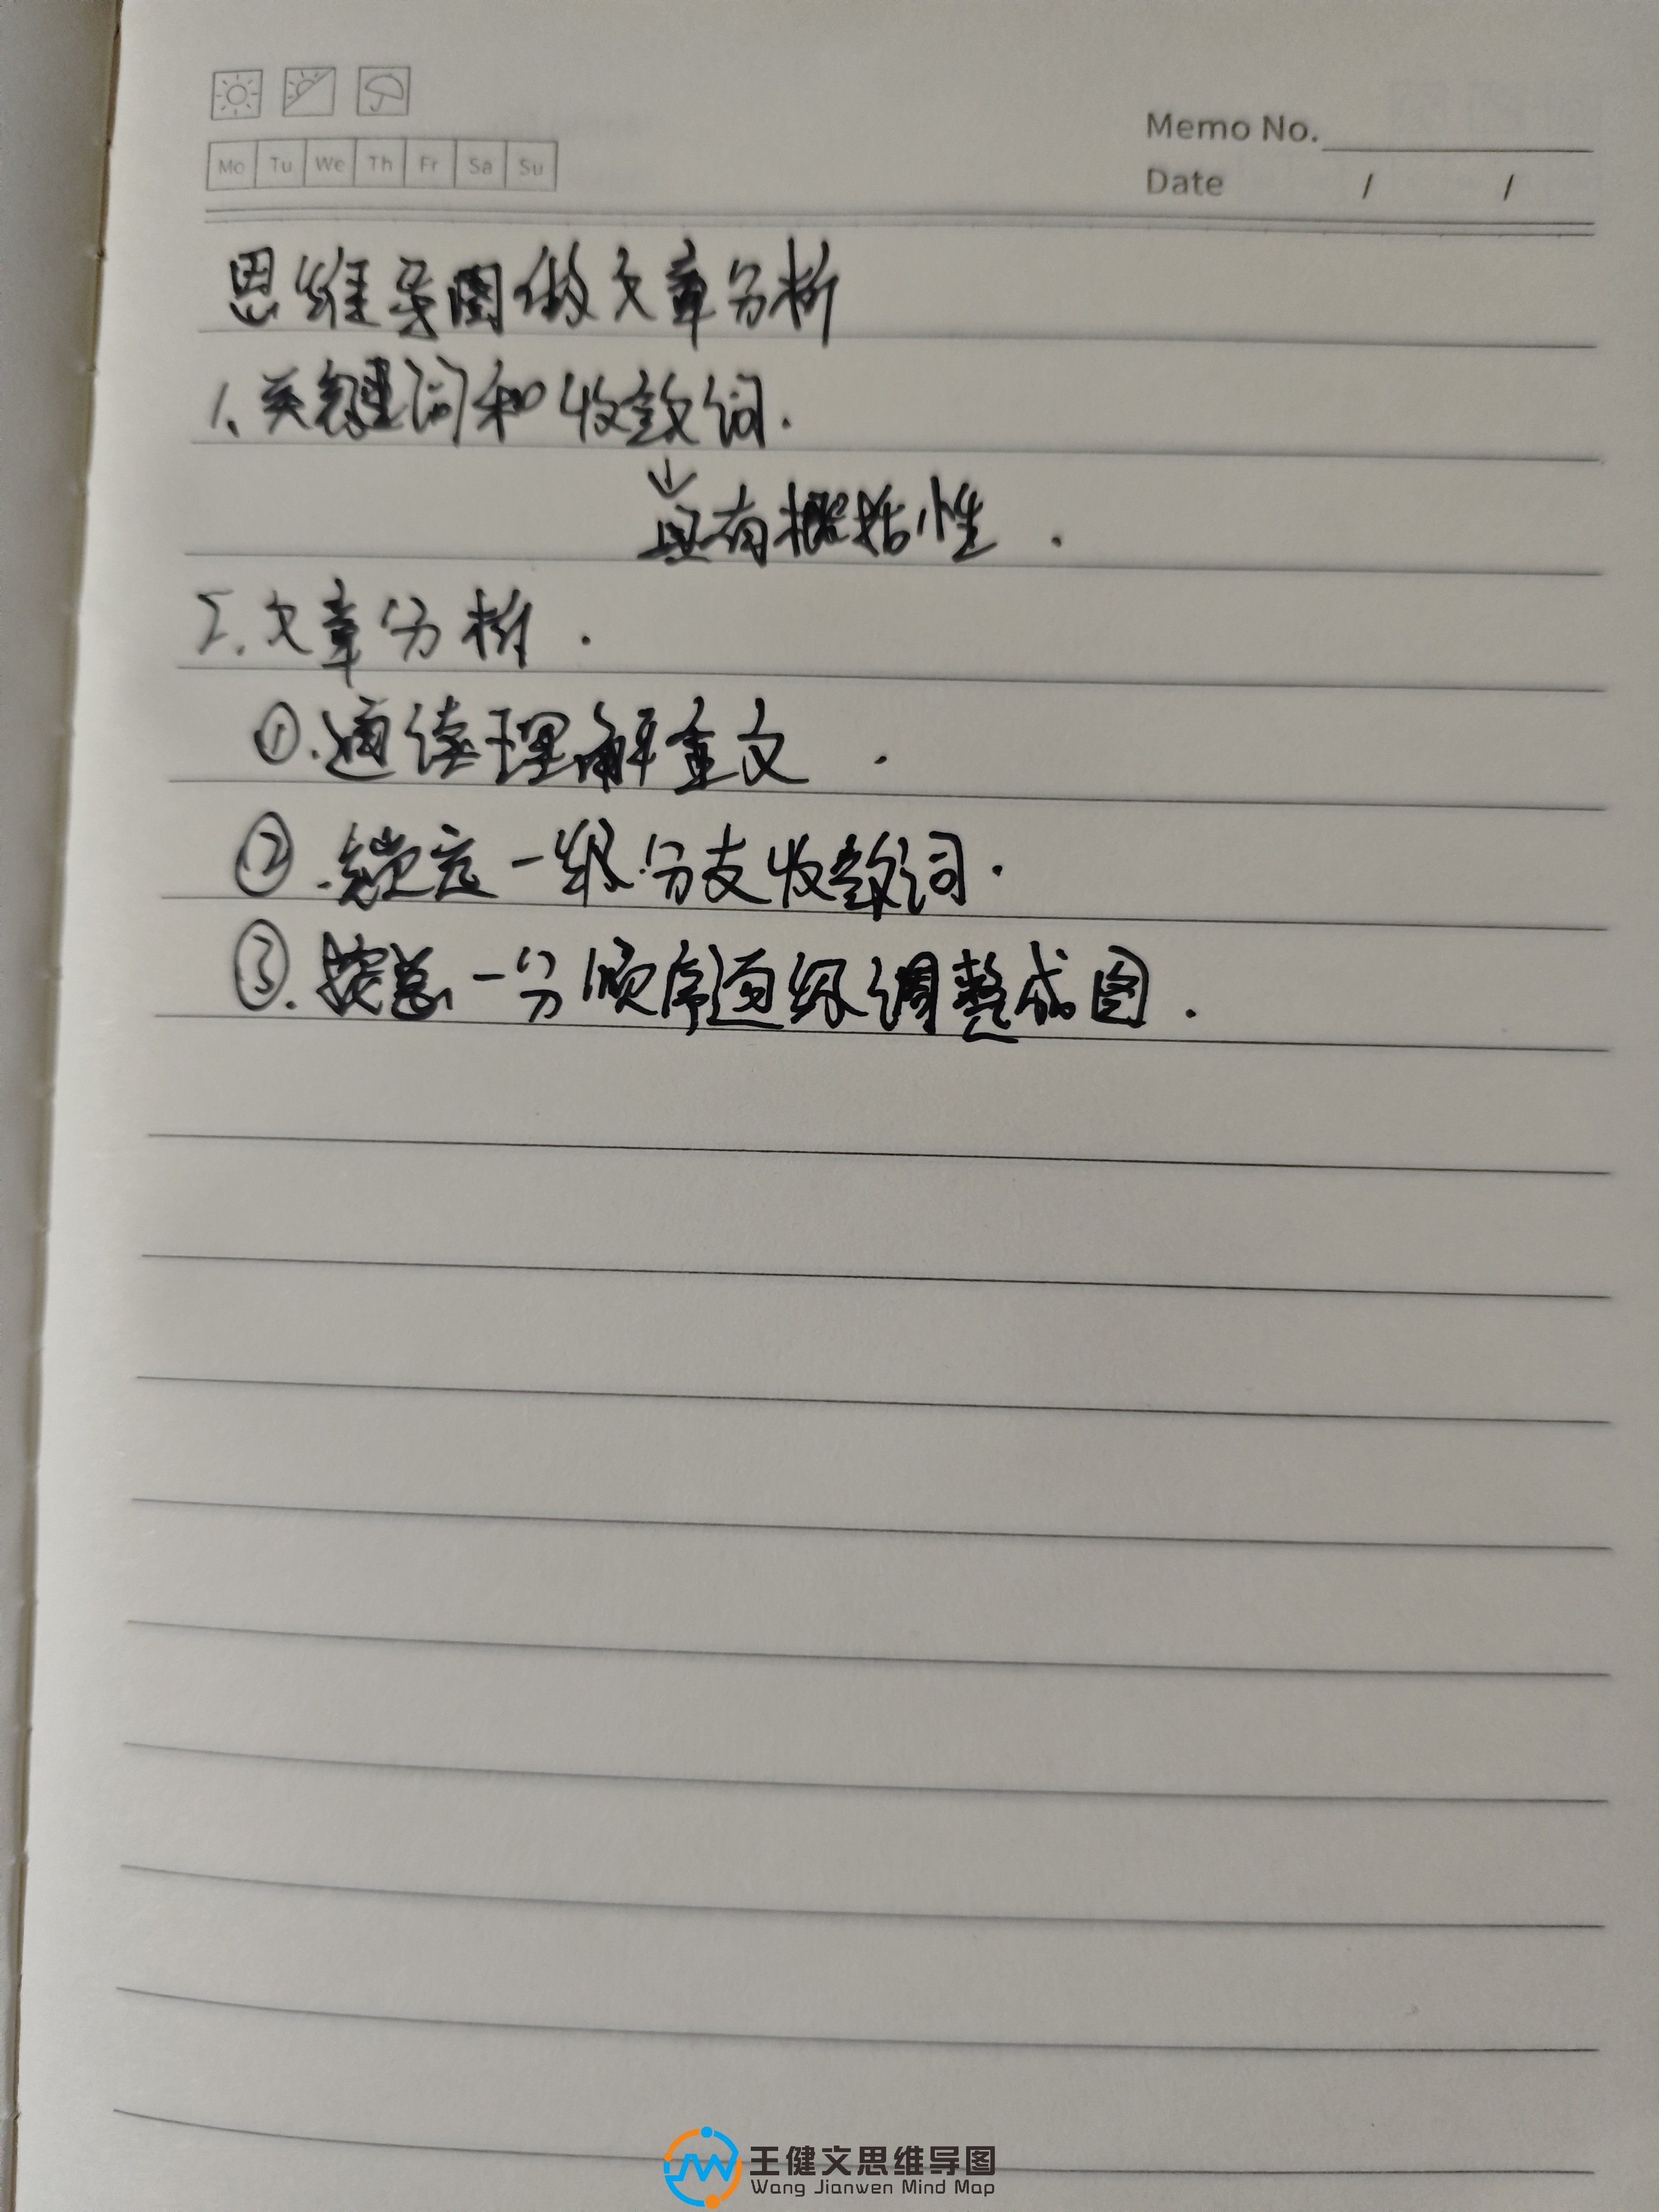 Memo No.
Mo Tu We Th Fr Sa Su
Date / /
思维导图做文章分析
1、关键词和收敛词.
↓
具有概括性.
2.文章分析.
①.通读理解全文.
②.锁定一级分支收敛词.
③.按总一分顺序逐级调整成图.
王健文思维导图
Wang Jianwen Mind Map